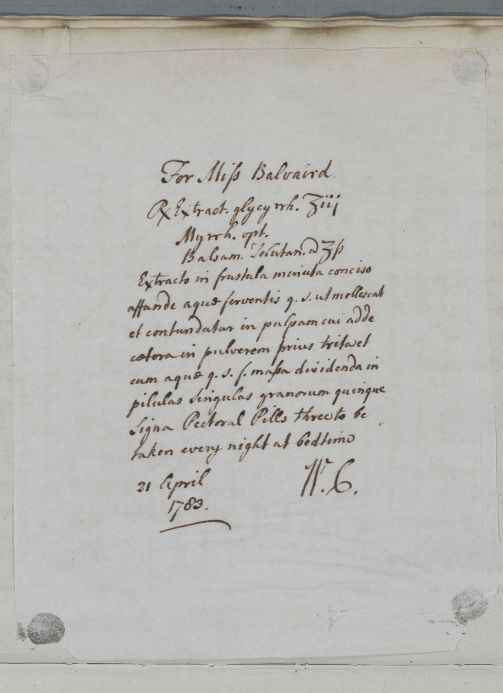 For Miſs Balvaird
℞ Extract. glycyrrh. ʒiij
Myrrh. opt.
Balsam. Tolutan. a ʒſs
Extracto in frustula minuta conciso
affunde aquæ ferventis q. s. ut mollescat
et contundatur in pulpam cui adde
cætera in pulverem prius trita et
cum aquæ q. s. f. maſsa dividenda in
pilulas singulas granorum quinque
Signa Pectoral Pills three to be
taken every night at bedtime
21 April W. C.
1783.